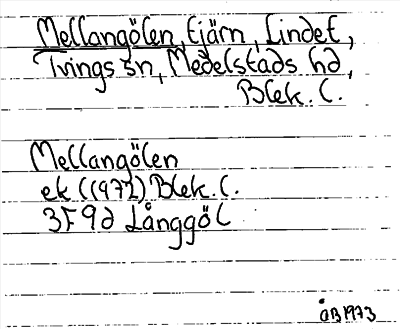 Mellangölen, tjärn, Lindet,
Tvings sn, Medelstads hd,
Blek. l.
Mellangölen
ek (1972) Blek. l.
3F 9d Långgöl
ÅB 1973